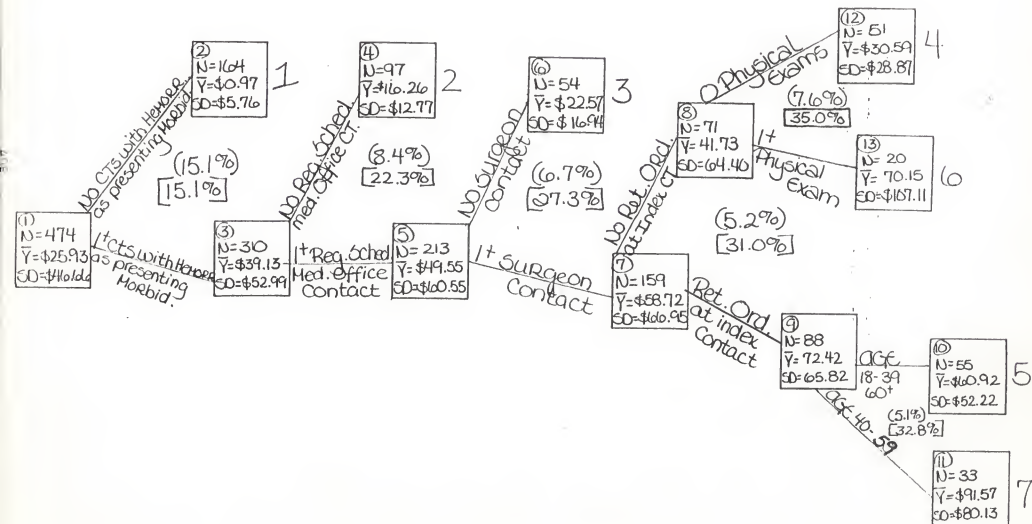 ①
N=474
Ȳ=$25.93
SD=$46.66
No CTS with Hemorr
as presenting Morbid.
②
N=164
Ȳ=$0.97
SD=$5.76
1
(15.1%)
[15.1%]
1+ CTS with Hemorr
as presenting
Morbid.
③
N=310
Ȳ=$39.13
SD=$52.99
No Reg. Sched
med. Office CT.
④
N=97
Ȳ=$16.26
SD=$12.77
2
(8.4%)
[22.3%]
1+ Reg. Sched
Med. Office
Contact
⑤
N=213
Ȳ=$49.55
SD=$60.55
No Surgeon
Contact
⑥
N=54
Ȳ=$22.57
SD=$16.94
3
(6.7%)
[27.3%]
1+ Surgeon
Contact
⑦
N=159
Ȳ=$58.72
SD=$66.95
No Ret. Ord.
at Index CT.
⑧
N=71
Ȳ=41.73
SD=64.40
(5.2%)
[31.0%]
0 Physical
Exams
⑫
N=51
Ȳ=$30.59
SD=$28.87
4
(7.6%)
35.0%
1+
Physical
Exam
⑬
N=20
Ȳ=70.15
SD=$107.11
6
Ret. Ord.
at index
Contact
⑨
N=88
Ȳ=72.42
SD=65.82
age
18-39
60+
⑩
N=55
Ȳ=$60.92
SD=$52.22
5
(5.1%)
[32.8%]
age 40-59
⑪
N=33
Ȳ=$91.57
SD=$80.13
7